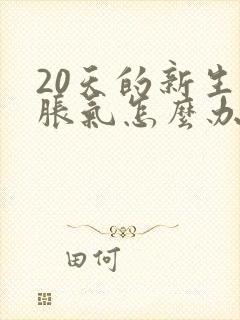 20天的新生
脹氣怎麼办
田何